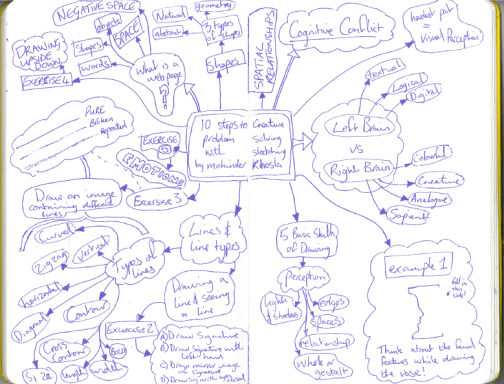 NEGATIVE SPACE
objects
SPACE
Shapes
words
DRAWING
UPSIDE
DOWN
EXERCISE 4
What is a
web page
?
Natural
abstract
geometry
3 types
of shapes
Shapes
SPATIAL
RELATIONSHIPS
Cognitive Conflict
hardest part
=
Visual Perception
10 steps to Creative
Problem Solving
with Sketching
by mohinder Khosla
Left Brain
VS
Right Brain
textual
Logical
Digital
Colourful
Creative
Analogue
Sapient
PURE
repeated
EXERCISE
5
EMOTIONS
Exercise 3
Draw an image
containing different
lines
Lines &
Line types
Types of
lines
Curved
Vertical
Zigzag
horizontal
Diagonal
Contour
Cross
Contour
Size
length
width
Drawing a
line & seeing a
line
Excercise 2
A) Draw Signature
B) Draw Signature with
left hand
C) Draw mirror image
signature
D) Draw Sig with eyes closed
5 Basic Skills
of Drawing
Perception
Lights
& shadows
edges
spaces
relationship
Whole or
gestalt
example 1
fill in
this
side!
Think about the facial
features while drawing
the vase!